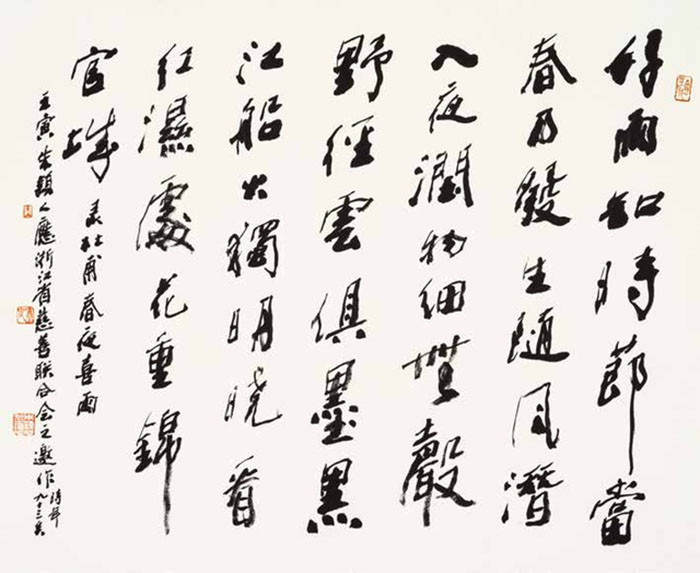 好雨知時節當
春乃發生隨風潛
入夜潤物細無聲
野徑雲俱墨黑
江船火獨明曉看
紅濕處花重錦
官城
录杜甫春夜喜雨
壬寅朱穎人應浙江省慈善联合会之邀作
時年九十三矣